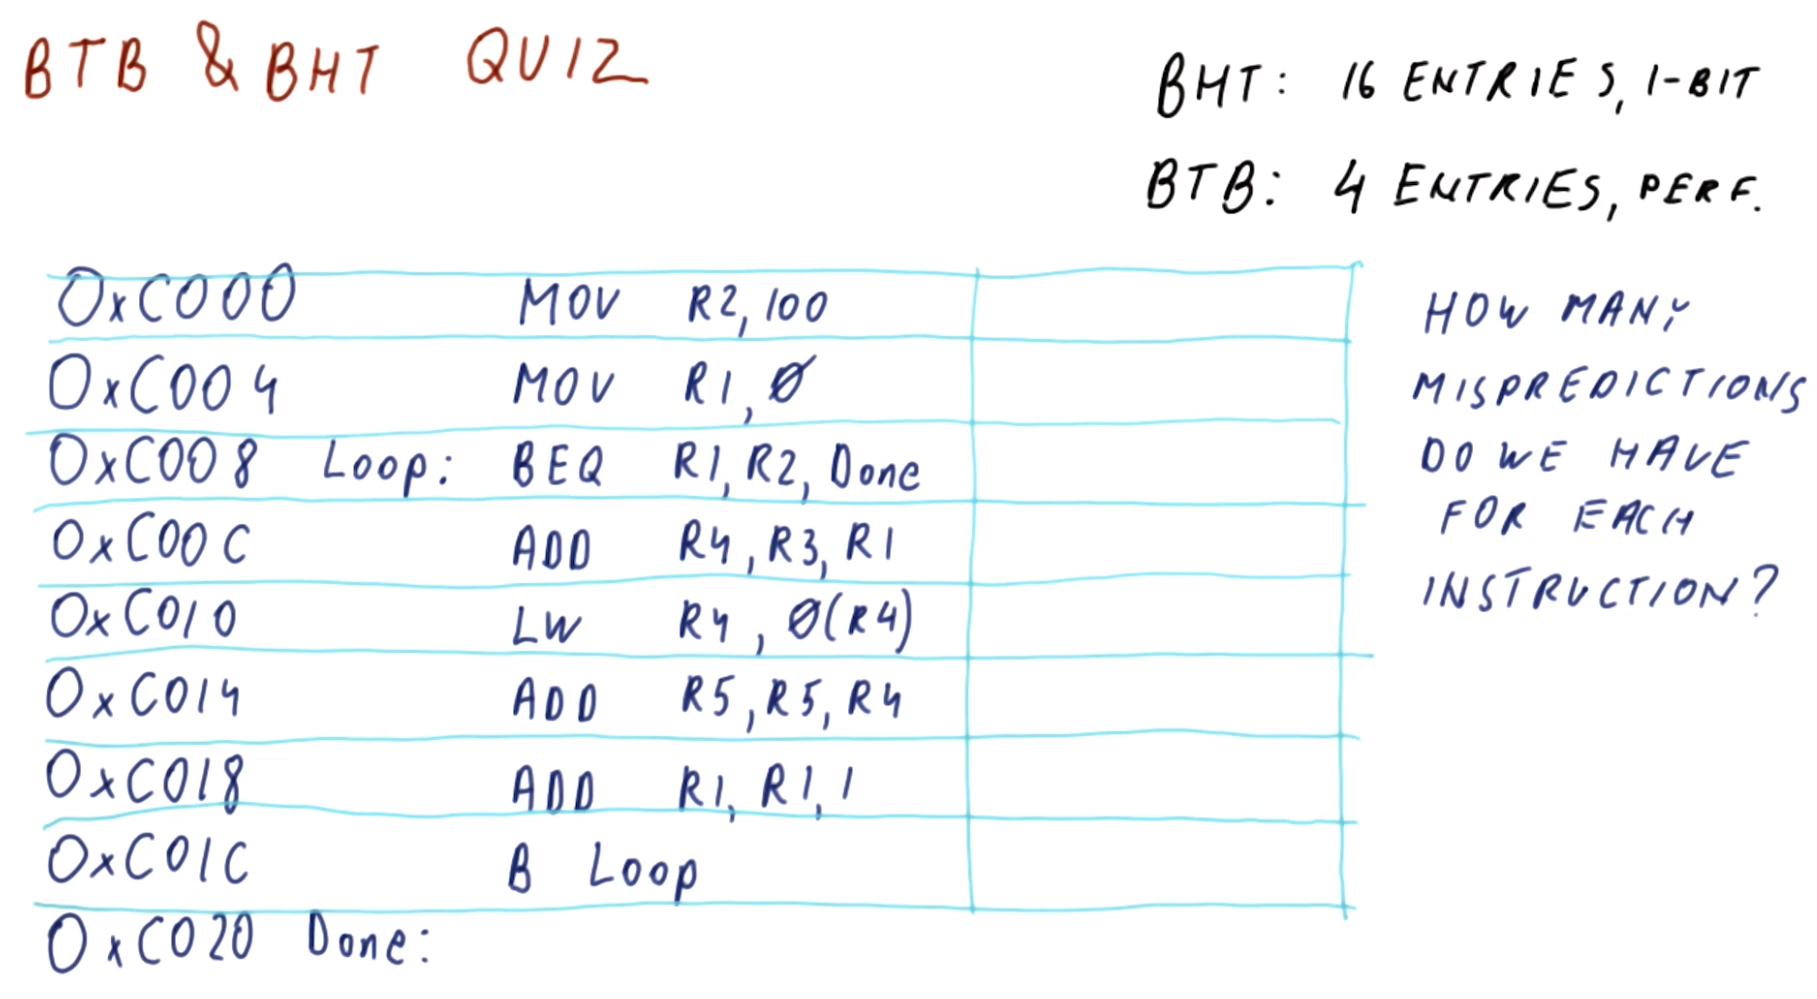 BTB & BHT QUIZ
BHT: 16 ENTRIES, 1-BIT
BTB: 4 ENTRIES, PERF.
0xC000 MOV R2, 100
0xC004 MOV R1, Ø
0xC008 Loop: BEQ R1, R2, Done
0xC00C ADD R4, R3, R1
0xC010 LW R4, Ø(R4)
0xC014 ADD R5, R5, R4
0xC018 ADD R1, R1, 1
0xC01C B Loop
0xC020 Done:
HOW MANY
MISPREDICTIONS
DO WE HAVE
FOR EACH
INSTRUCTION?